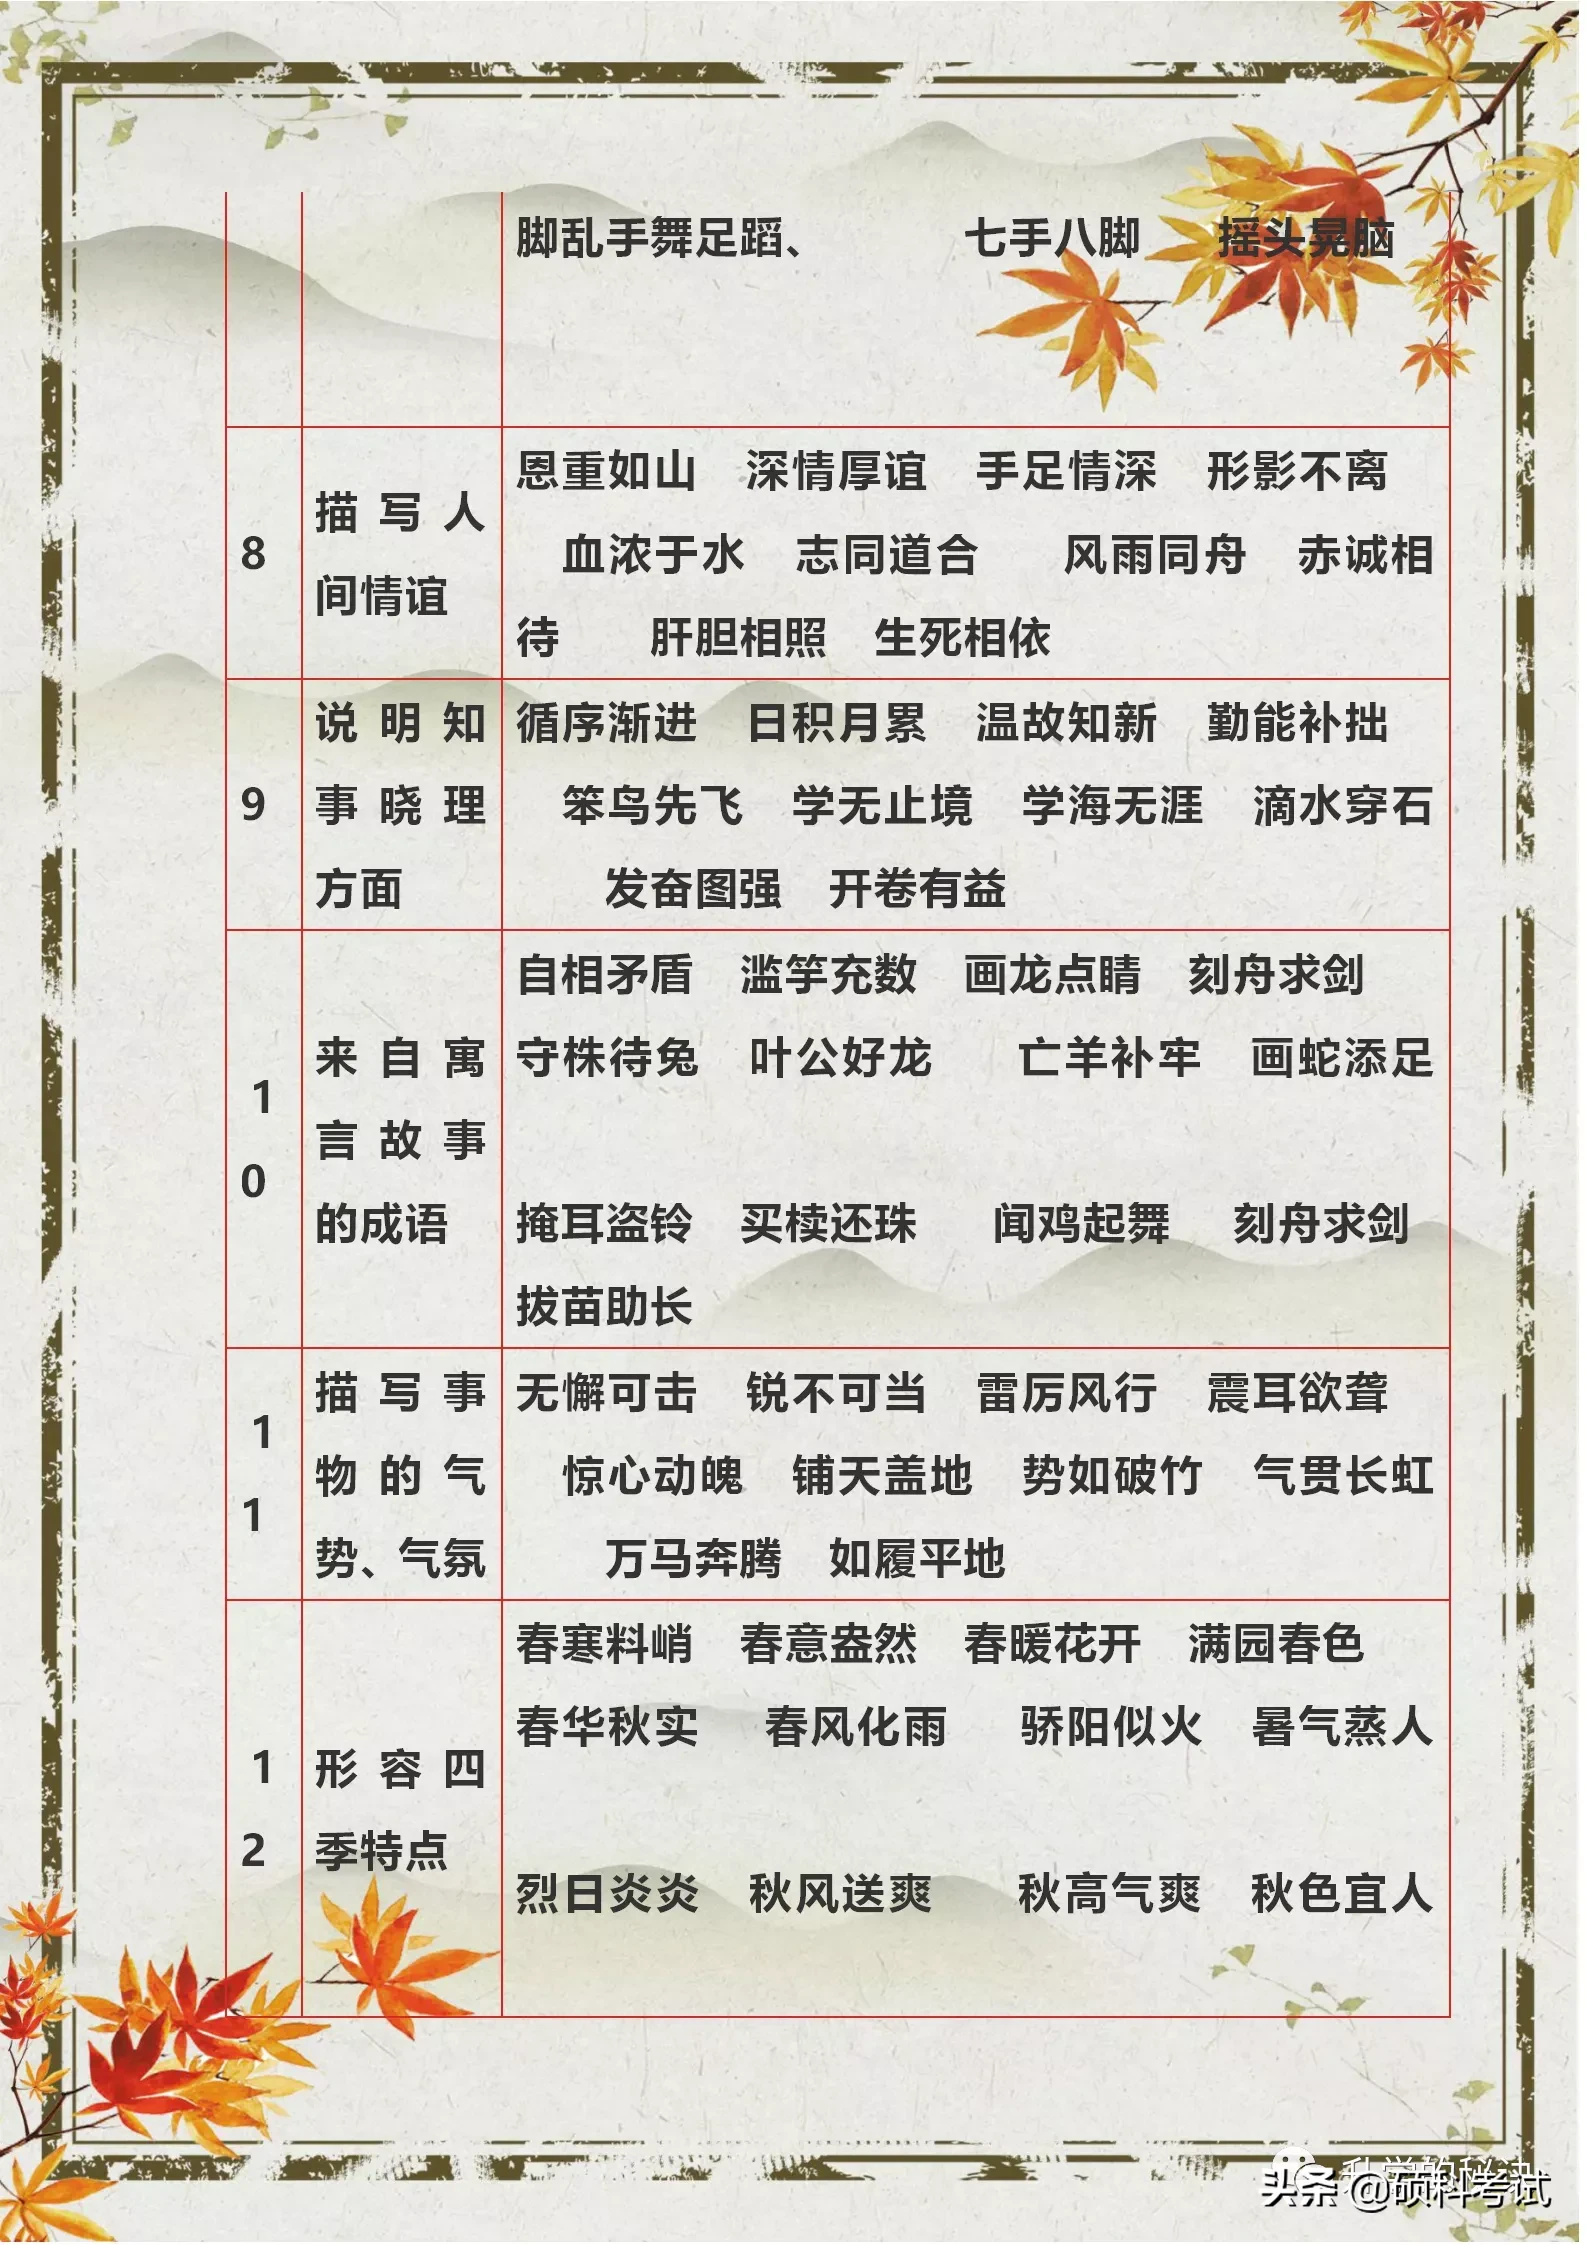 脚乱手舞足蹈、 七手八脚 摇头晃脑
8
描写人
间情谊
恩重如山 深情厚谊 手足情深 形影不离
血浓于水 志同道合 风雨同舟 赤诚相
待 肝胆相照 生死相依
9
说明知
事晓理
方面
循序渐进 日积月累 温故知新 勤能补拙
笨鸟先飞 学无止境 学海无涯 滴水穿石
发奋图强 开卷有益
1
0
来自寓
言故事
的成语
自相矛盾 滥竽充数 画龙点睛 刻舟求剑
守株待兔 叶公好龙 亡羊补牢 画蛇添足
掩耳盗铃 买椟还珠 闻鸡起舞 刻舟求剑
拔苗助长
1
1
描写事
物的气
势、气氛
无懈可击 锐不可当 雷厉风行 震耳欲聋
惊心动魄 铺天盖地 势如破竹 气贯长虹
万马奔腾 如履平地
1
2
形容四
季特点
春寒料峭 春意盎然 春暖花开 满园春色
春华秋实 春风化雨 骄阳似火 暑气蒸人
烈日炎炎 秋风送爽 秋高气爽 秋色宜人
头条 @硕科考试